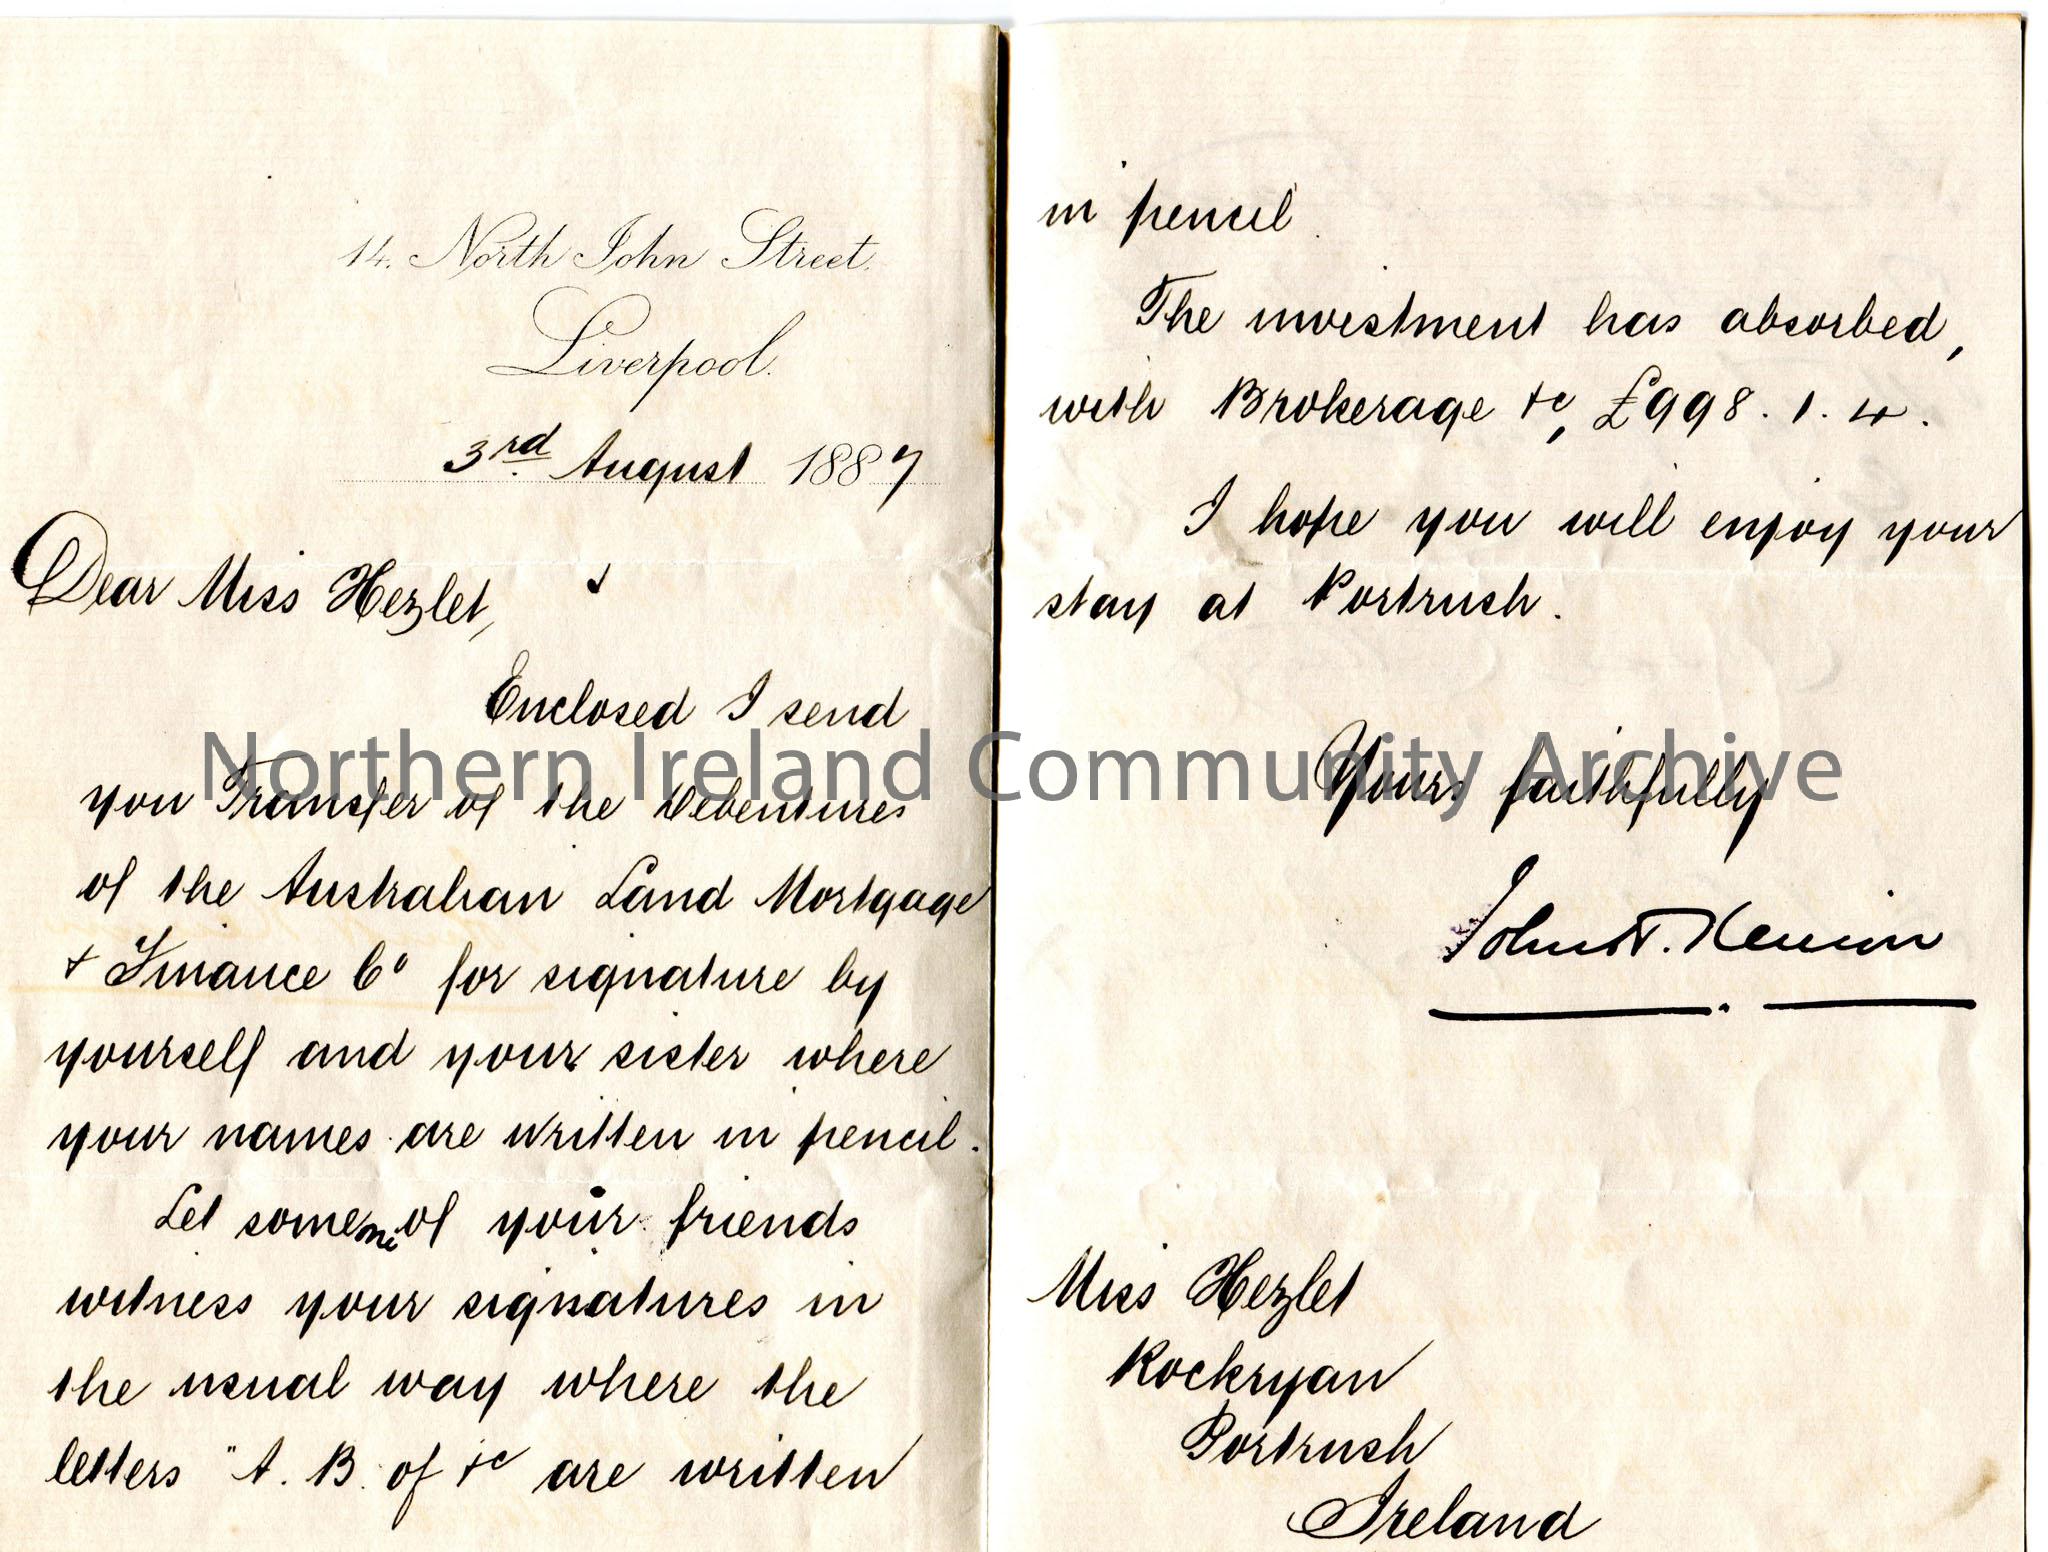 14. North John Street.
Liverpool.
3rd August 1887
Dear Miss Hezlet,
Enclosed I send
you Transfer of the Debentures
of the Australian Land Mortgage
& Finance Co for signature by
yourself and your sister where
your names are written in pencil.
Let someone of your friends
witness your signatures in
the usual way where the
letters "A. B. of &c are written
in pencil.
The investment has absorbed,
with Brokerage &c, £998. 1. 4.
I hope you will enjoy your
stay at Portrush.
Yours faithfully
John
Miss Hezlet
Rockryan
Portrush
Ireland
Northern Ireland Community Archive